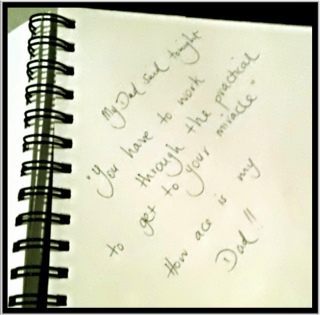 My Dad said tonight
"You have to work
through the practical
to get to your miracle"
How ace is my
Dad!!